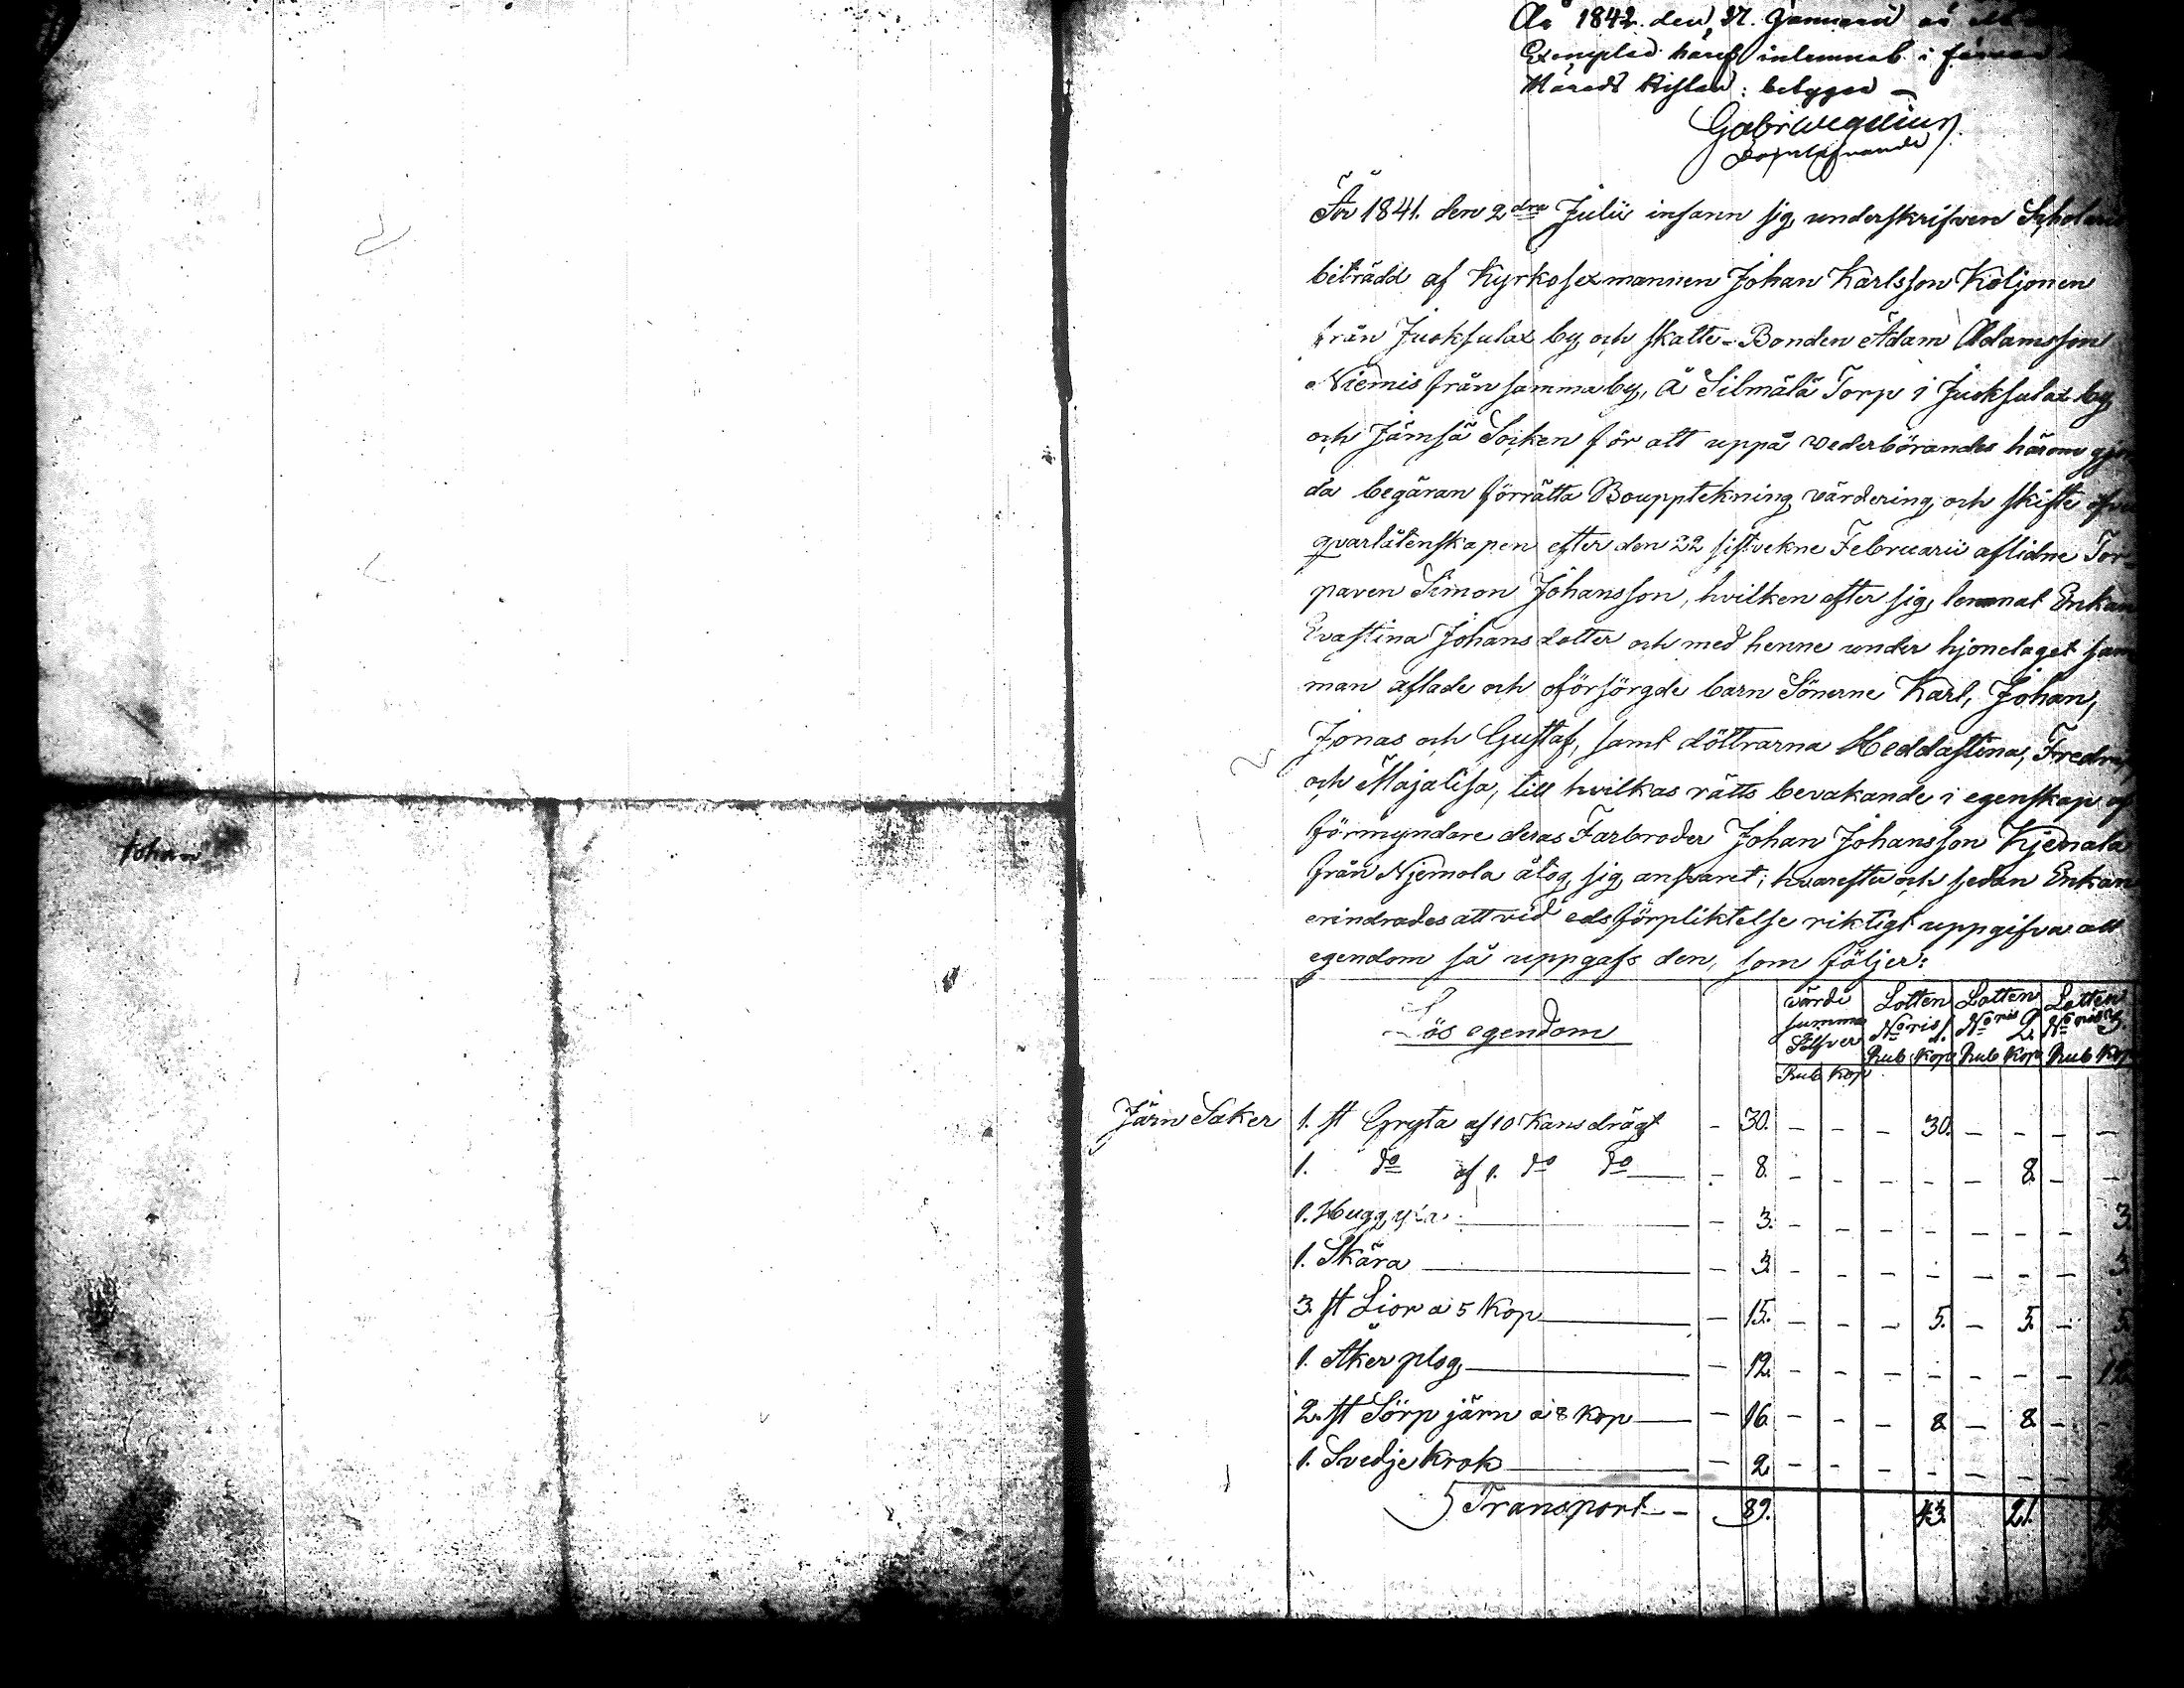 År 1842 den 27. Januarii är ett
Exemplar häraf inlemnadt i
Härads Kistan; betygar
Gabr Wegelius
År 1841. den 2dra Julii infann sig underskrifven
biträdd af Kyrkosexmannen Johan Karlsson Koljonen
från Juoksulax by och Skatte-Bonden Adam Adamsson
Niemis från samma by, å Silmälä Torp i Juoksulax by
och Jämsä Socken för att uppå vederbörandes härom gjor-
da begäran förrätta Boupptekning värdering och skifte öfver
qvarlåtenskapen efter den 22 sistvekne Februarii aflidne Tor-
paren Simon Johansson, hvilken efter sig lemnat Enkan
Evastina Johansdotter och med henne under hjonelaget sam-
man aflade och oförsörgde barn Sönerne Karl, Johan,
Jonas och Gustaf, samt döttrarna Heddastina,
och Majalisa, till hvilkas rätts bevakande i egenskap af
förmyndare deras Farbroder Johan Johansson
från Njemola åtog sig ansvaret; hvarefter och sedan Enkan
erindrades att vid eds förpliktelse riktigt uppgifva all
egendom så uppgafs den, som följer:
Johan
Lös egendom
Värde Lotten Lotten Lotten
summa Noris 1. Noris 2. Noris 3
Silfver Rub Kop Rub Kop Rub Kop
Rub Kop
Järn Saker 1. st Gryta af 10 Kans drägt - 30. - - - 30. - - - -
1. do af 1. do do - 8. - - - - - 8. - -
1. Huggyxa - 3. - - - - - - - 3.
1. Skära - 3. - - - - - - - 3.
3. st Lior a 5 Kop - 15. - - - 5. - 5. - 5.
1. Åker plog - 12. - - - - - - - 12
2. st Sörp järn a 8 Kop - 16. - - - 8. - 8. - -
1. Svedje krok - 2 - - - - - - -
Transport - 89. 43. 21.